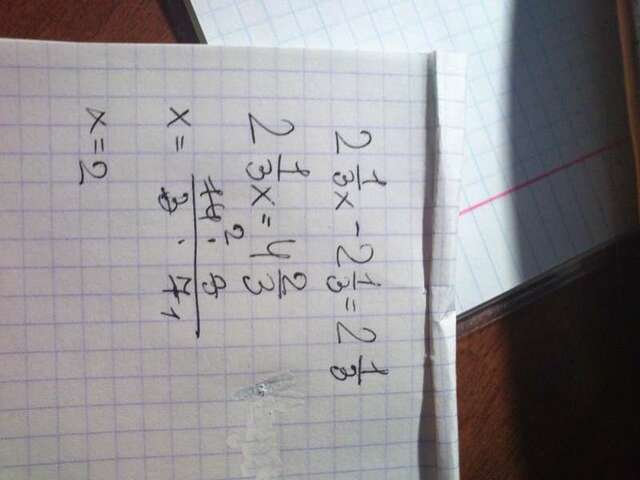 2 1/3 x - 2 1/3 = 2 1/3
2 1/3 x = 4 2/3
x = 14 2 · 3 / 3 · 7 1
x = 2